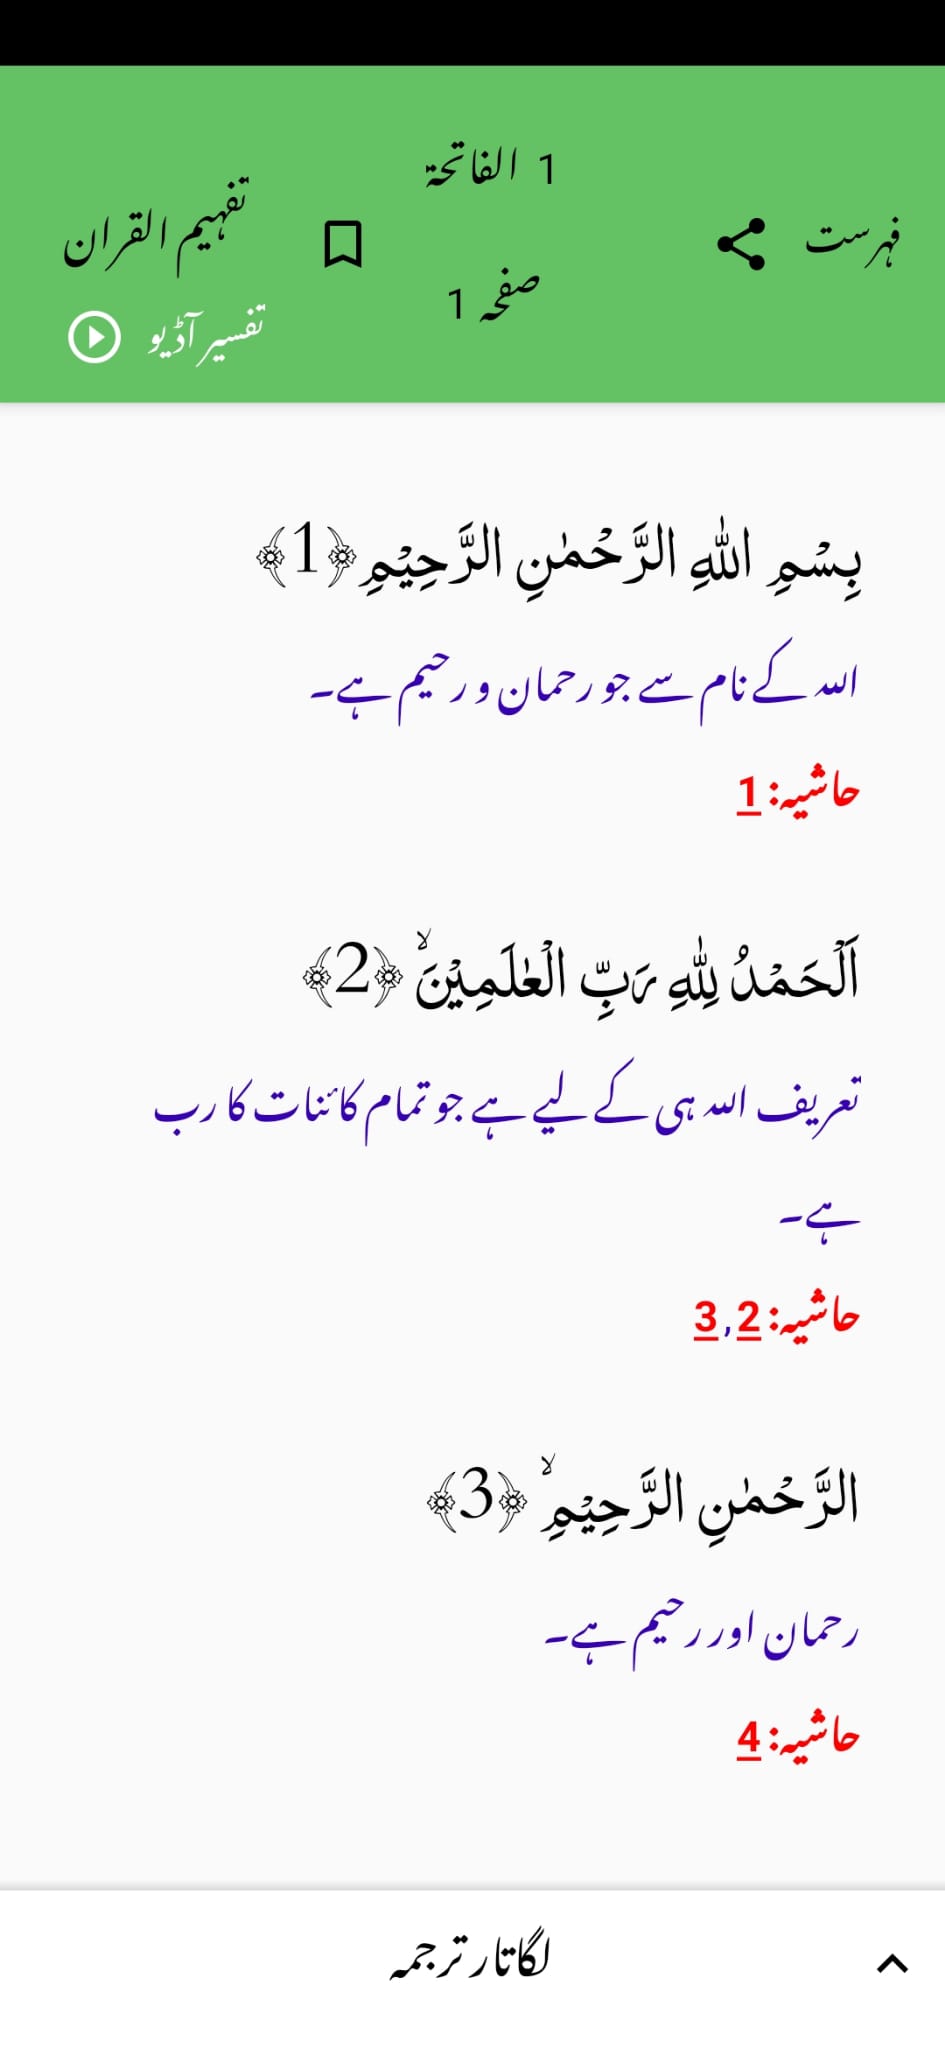 فہرست
1 الفاتحۃ
صفحہ 1
تفہیم القران
تفسیر آڈیو
بِسْمِ اللهِ الرَّحْمٰنِ الرَّحِيْمِ ﴿1﴾
اللہ کے نام سے جو رحمان و رحیم ہے۔
حاشیہ: 1
اَلْحَمْدُ لِلهِ رَبِّ الْعٰلَمِيْنَۙ ﴿2﴾
تعریف اللہ ہی کے لیے ہے جو تمام کائنات کا رب
ہے۔
حاشیہ: 2, 3
الرَّحْمٰنِ الرَّحِيْمِۙ ﴿3﴾
رحمان اور رحیم ہے۔
حاشیہ: 4
لگاتار ترجمہ